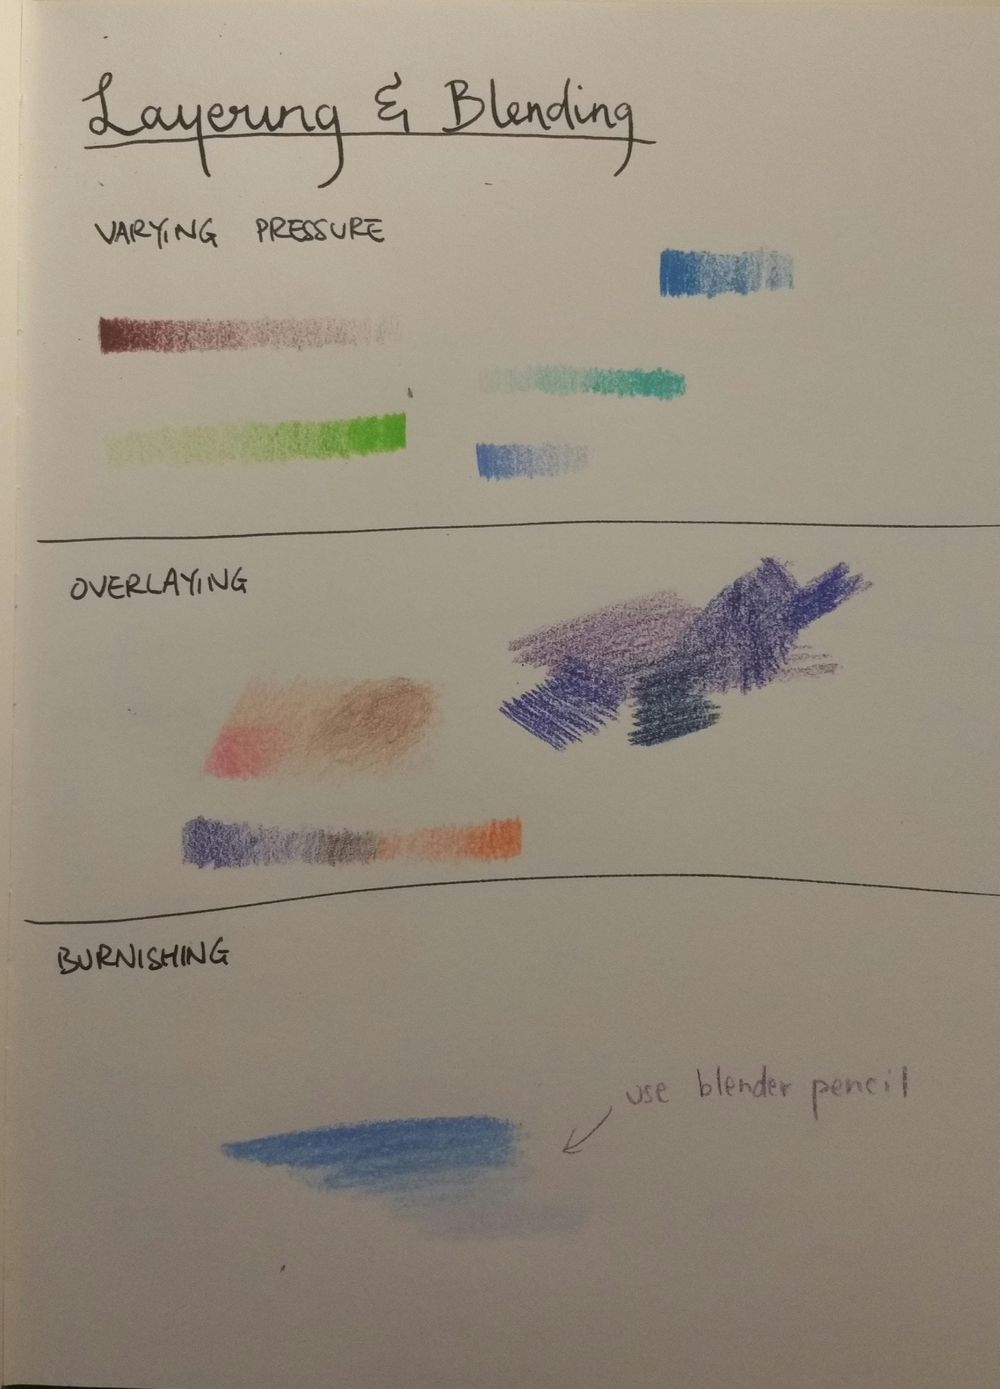 Layering & Blending
VARYING PRESSURE
OVERLAYING
BURNISHING
use blender pencil